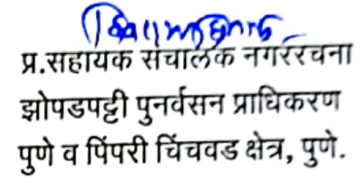 प्र.सहायक संचालक नगररचना
झोपडपट्टी पुनर्वसन प्राधिकरण
पुणे व पिंपरी चिंचवड क्षेत्र, पुणे.